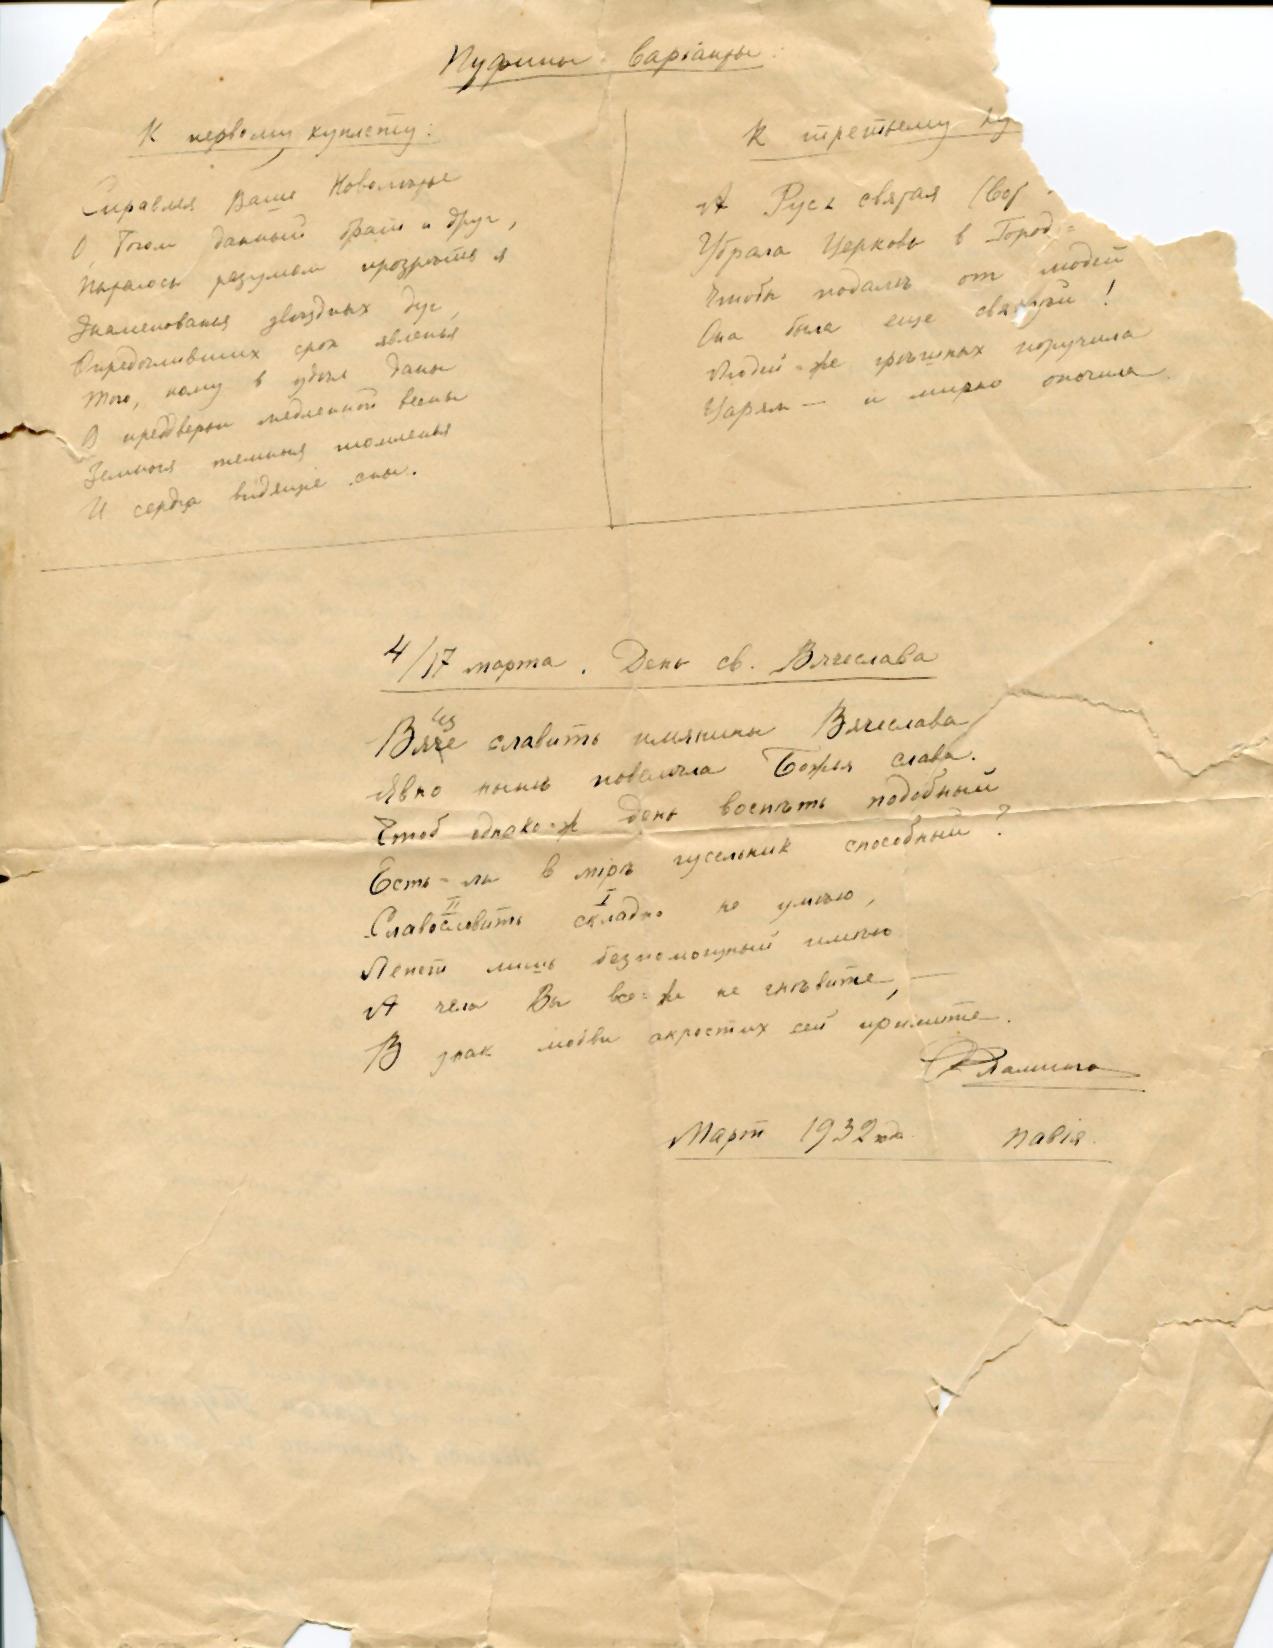 Пуфины варіанты:
К первому куплету:
Справляя Ваше Новолѣтье
О, Богом данный брат и друг,
Пыталось разумом прозрѣть я
Знаменованья звѣздных дуг,
Опредѣливших срок явленья
Того, кому в удѣл даны
В преддверьи медленной весны
Земныя темныя томленья
И сердца видящіе сны.
К третьему ку
А Русь святая
Убрала Церковь в Город=
Чтобы подалѣ от людей
Она была еще святѣй!
Людей-же грѣшных поручила
Царям — и мирно опочила.
4/17 марта. День св. Вячеслава
Вяче славить имянины Вячеслава
Явно нынѣ повелѣла Божья слава.
Чтоб однако-ж день воспѣть подобный
Есть-ли в мірѣ гусельник способный?
II I
Славословить складно не умѣю,
Лепет лишь безпомощный имѣю
А чела Вы все-же не гнѣвите, —
В знак любви акростих сей примите.
Фламинго
Март 1932 года. Павія.